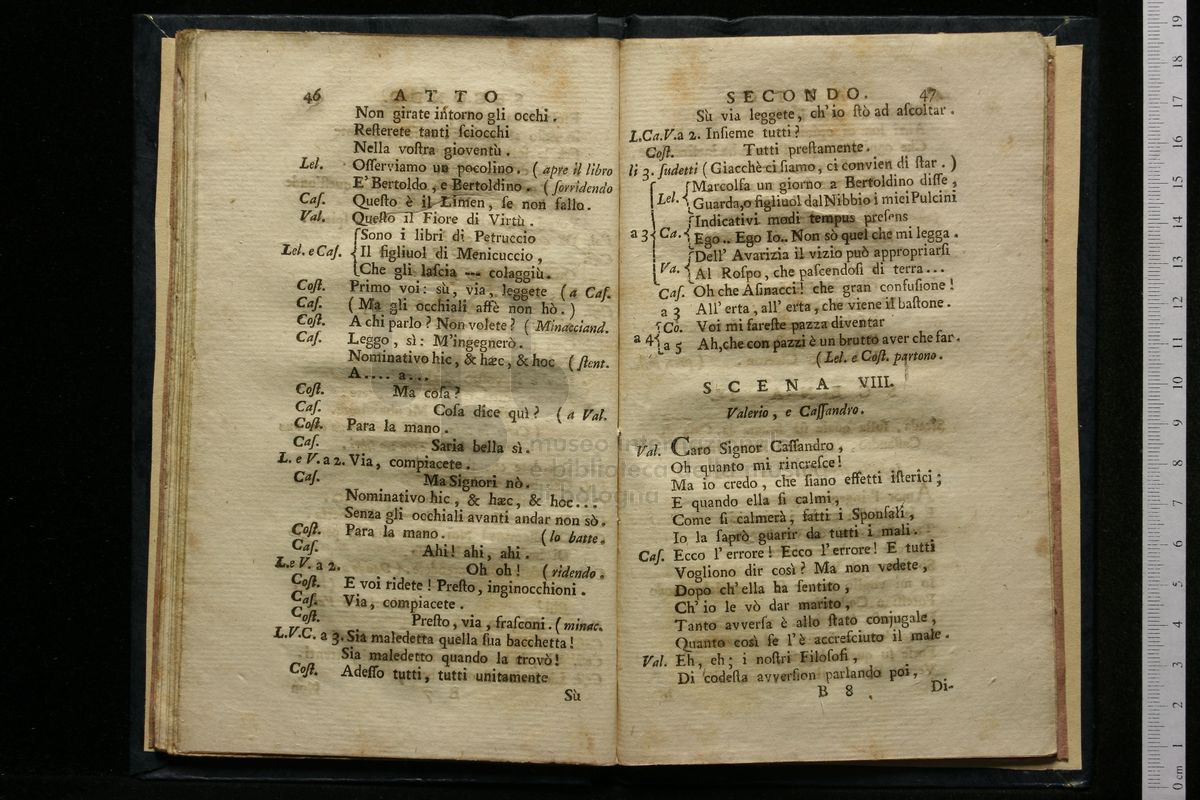 46 ATTO
Non girate intorno gli occhi.
Reſterete tanti ſciocchi
Nella voſtra gioventù.
Lel. Oſſerviamo un pocolino. (apre il libro
E' Bertoldo, e Bertoldino. (ſorridendo
Caſ. Queſto è il Limen, ſe non fallo.
Val. Queſto il Fiore di Virtù.
Sono i libri di Petruccio
Lel. e Caſ. Il figliuol di Menicuccio,
Che gli laſcia --- colaggiù.
Coſt. Primo voi: sù, via, leggete (a Caſ.
Caſ. (Ma gli occhiali affè non hò.)
Coſt. A chi parlo? Non volete? (Minacciand.
Caſ. Leggo, sì: M'ingegnerò.
Nominativo hic, & hæc, & hoc (ſtent.
A.... a...
Coſt. Ma coſa?
Caſ. Coſa dice quì? (a Val.
Coſt. Para la mano.
Caſ. Saria bella sì.
L. e V. a 2. Via, compiacete.
Caſ. Ma Signori nò.
Nominativo hic, & hæc, & hoc...
Senza gli occhiali avanti andar non sò.
Coſt. Para la mano. (lo batte.
Caſ. Ahi! ahi, ahi.
L. e V. a 2. Oh oh! (ridendo.
Coſt. E voi ridete! Preſto, inginocchioni.
Caſ. Via, compiacete.
Coſt. Preſto, via, fraſconi. (minac.
L.V.C. a 3. Sia maledetta quella ſua bacchetta!
Sia maledetto quando la trovò!
Coſt. Adeſſo tutti, tutti unitamente
Sù
SECONDO. 47
Sù via leggete, ch'io ſtò ad aſcoltar.
L.Ca.V.a 2. Inſieme tutti?
Coſt. Tutti preſtamente.
li 3. ſudetti (Giacchè ci ſiamo, ci convien di ſtar.)
Marcolfa un giorno a Bertoldino diſſe,
Lel. Guarda,o figliuol dal Nibbio i miei Pulcini
Indicativi modi tempus preſens
a 3 Ca. Ego.. Ego Io.. Non sò quel che mi legga.
Dell' Avarizia il vizio può appropriarſi
Va. Al Roſpo, che paſcendoſi di terra...
Caſ. Oh che Aſinacci! che gran confuſione!
a 3 All' erta, all' erta, che viene il baſtone.
Co. Voi mi fareſte pazza diventar
a 4 a 5 Ah,che con pazzi è un brutto aver che far.
(Lel. e Coſt. partono.
SCENA VIII.
Valerio, e Caſſandro.
Val. Caro Signor Caſſandro,
Oh quanto mi rincreſce!
Ma io credo, che ſiano effetti iſterici;
E quando ella ſi calmi,
Come ſi calmerà, fatti i Sponſali,
Io la ſaprò guarir da tutti i mali.
Caſ. Ecco l'errore! Ecco l'errore! E tutti
Vogliono dir così? Ma non vedete,
Dopo ch'ella ha ſentito,
Ch'io le vò dar marito,
Tanto avverſa è allo ſtato conjugale,
Quanto così ſe l'è accreſciuto il male.
Val. Eh, eh; i noſtri Filoſofi,
Di codeſta avverſion parlando poi,
B 8 Di-